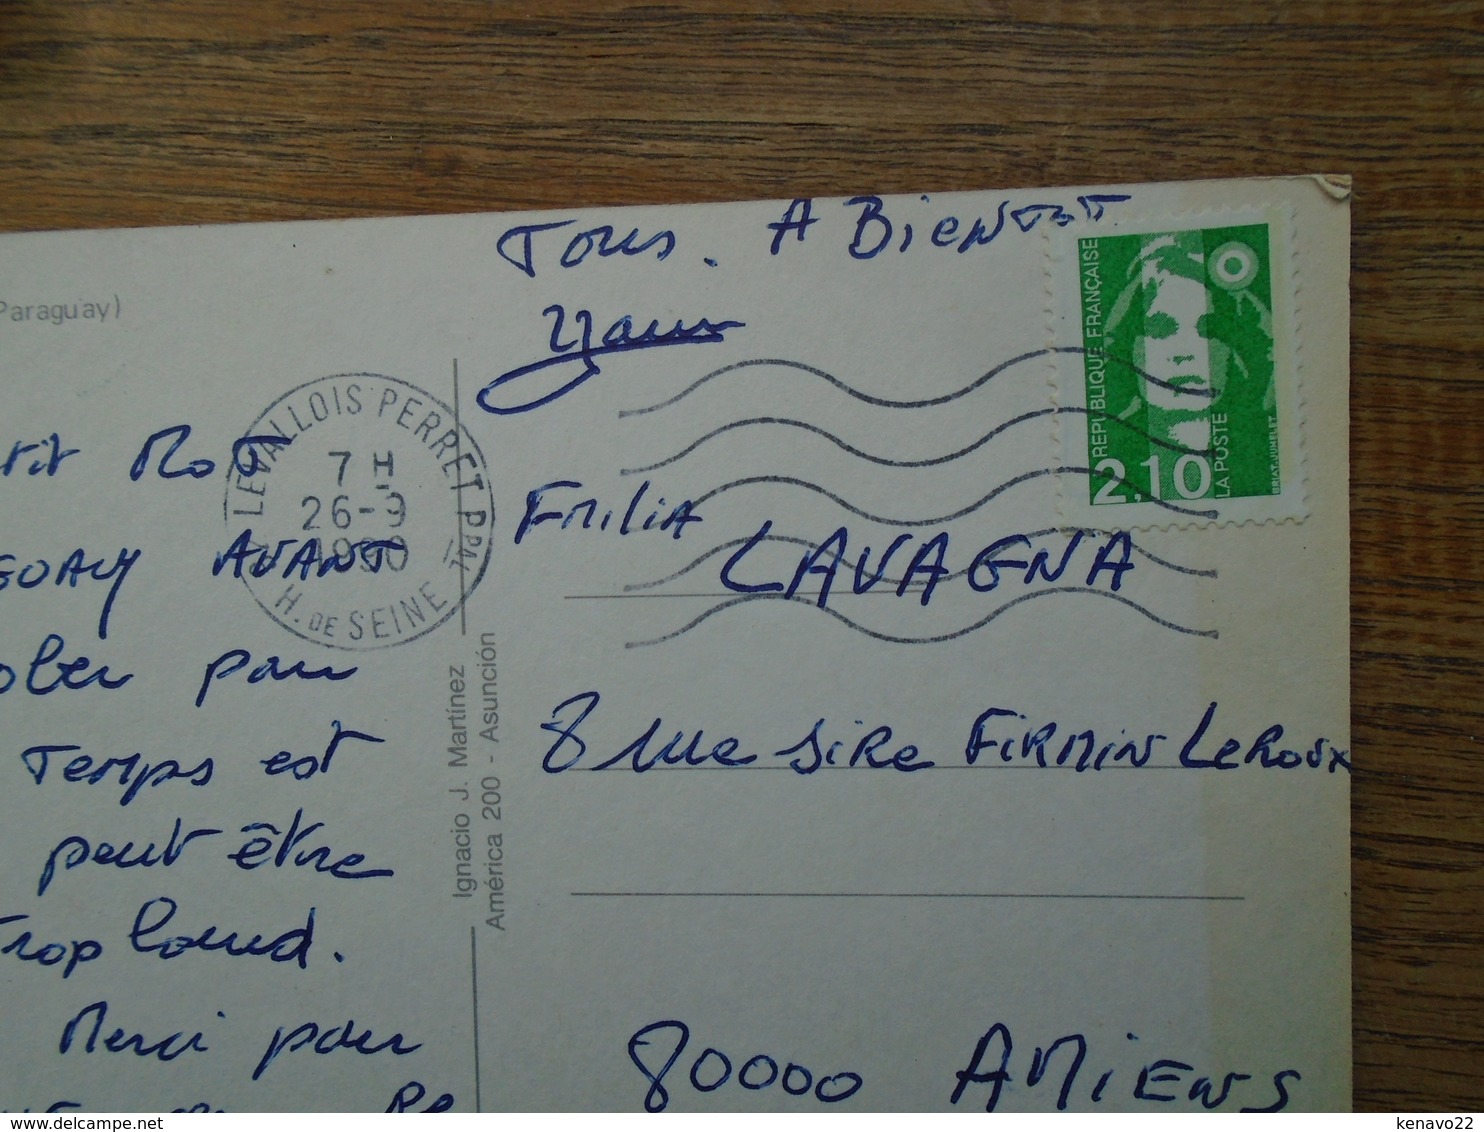 Paraguay)
tit Mot
AVANT
pour
Temps est
peut être
Trop lourd.
Merci pour
Tous. A Bientôt
LEVALLOIS PERRET PPAL
7 H
26-9
1990
H. DE SEINE
Ignacio J. Martínez
América 200 - Asunción
REPUBLIQUE FRANÇAISE
2,10
LA POSTE
BRIAT-JUMELET
Emilia
LAVAGNA
8 rue Sire Firmin Leroux
80000 AMIENS
delcampe.net
kenavo22